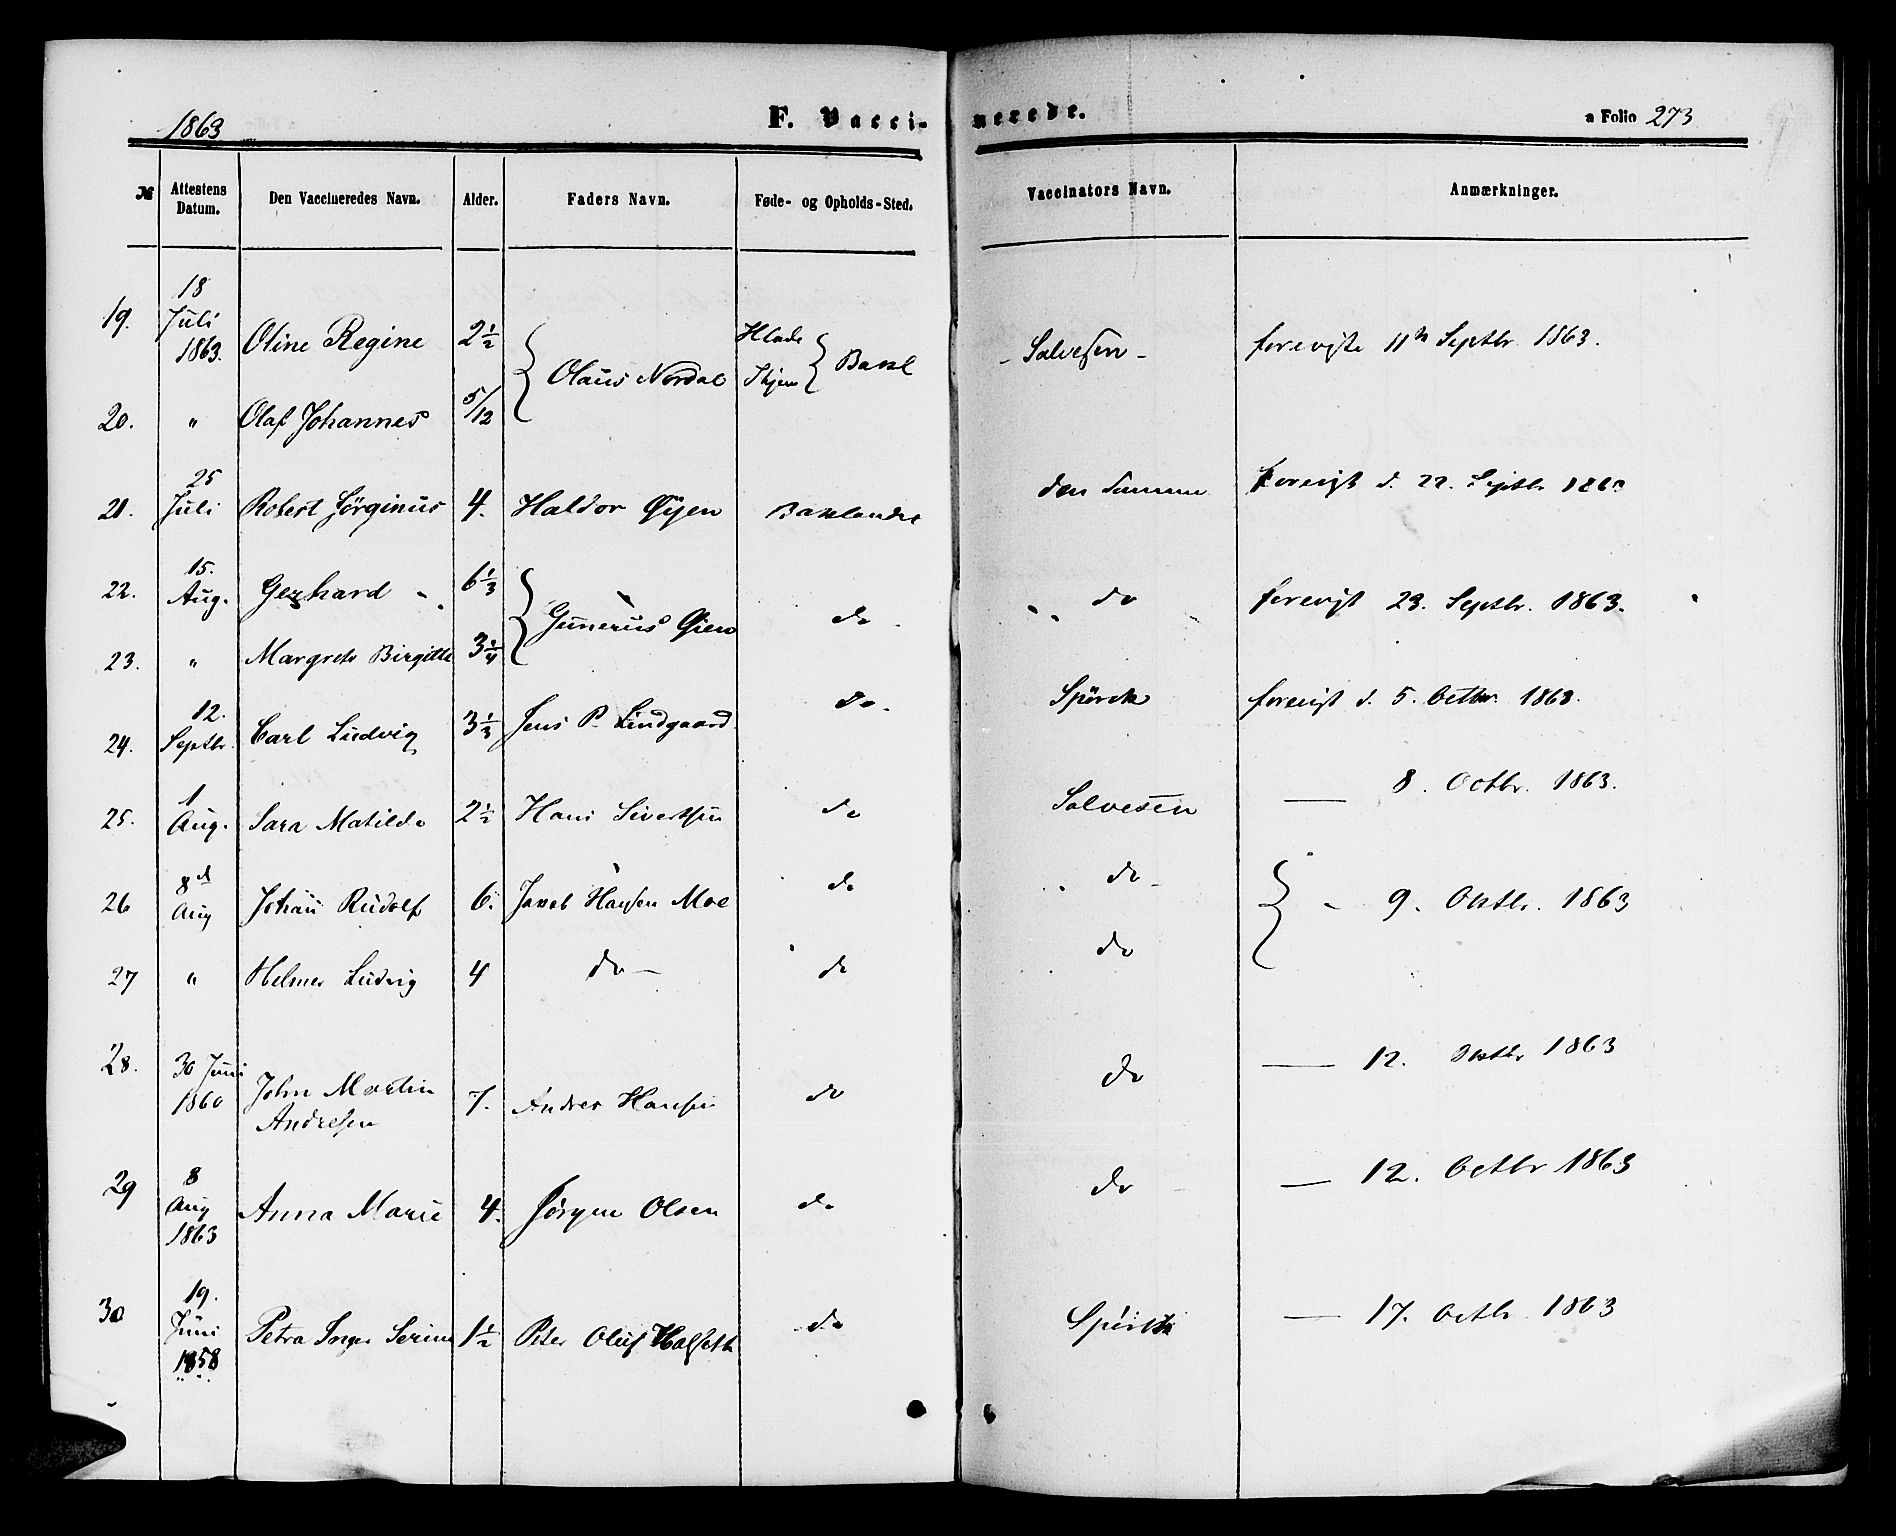 1863
F. Vacci-
nerede.
a Folio 273
№ Attestens Datum. Den Vaccineredes Navn. Alder. Faders Navn. Føde- og Opholds-Sted. Vaccinators Navn. Anmærkninger.
19. 18 Juli 1863. Oline Regine 2½ Olaus Nordal Hlade Bakl - Salvesen - forevist 11te Septbr. 1863.
20. " Olaf Johannes 5/12
21. 25 Juli Robert Jørginus 4. Haldor Øyen Baklandet den Samme forevist d. 22. Septbr. 1863
22. 15. Aug. Gerhard 6⅓ Gunerus Øien do do forevist 23. Septbr. 1863.
23. " Margrete Birgitte 3¼
24. 12. Septbr. Carl Ludvig 3⅓ Jens P. Lindgaard do. Spörck forevist d. 5. Octbr. 1863.
25. 1 Aug. Sara Matilde 2½ Hans Sivertsen do Salvesen — 8. Octbr. 1863.
26 8d Aug Johan Rudolf 6. Jacob Hansen Moe do do - 9. Oktbr. 1863
27 " Helmer Ludvig 4 do — do do
28. 30 Juni 1860 John Martin Andresen 7. Andres Hansen do do — 12. Oktbr 1863
29 8 Aug 1863 Anna Marie 4. Jørgen Olsen do do — 12. Octbr 1863
30 19. Juni 1858 Petra Inger Serine 1½ Peter Oluf Halseth do Spörck — 17. Octbr. 1863